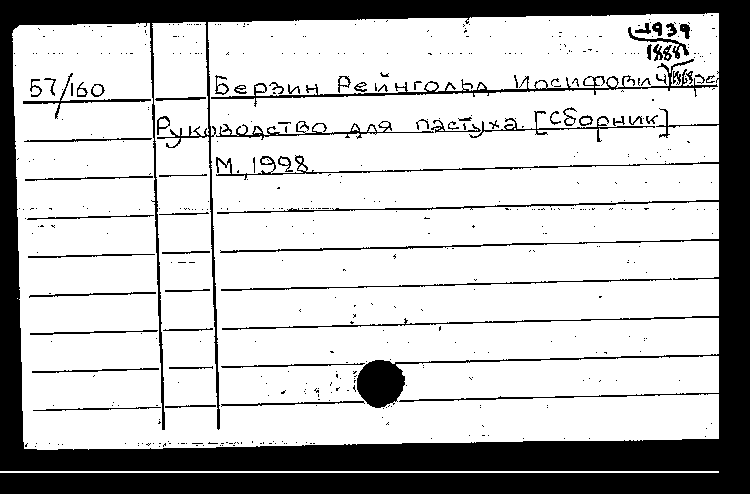 -1939
1888
57/160 Берзин Рейнгольд Иосифович
Руководство для пастуха. [Сборник]
М., 1998.